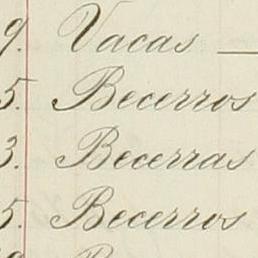 9. Vacas —
5. Becerros
3. Becerras
5. Becerros